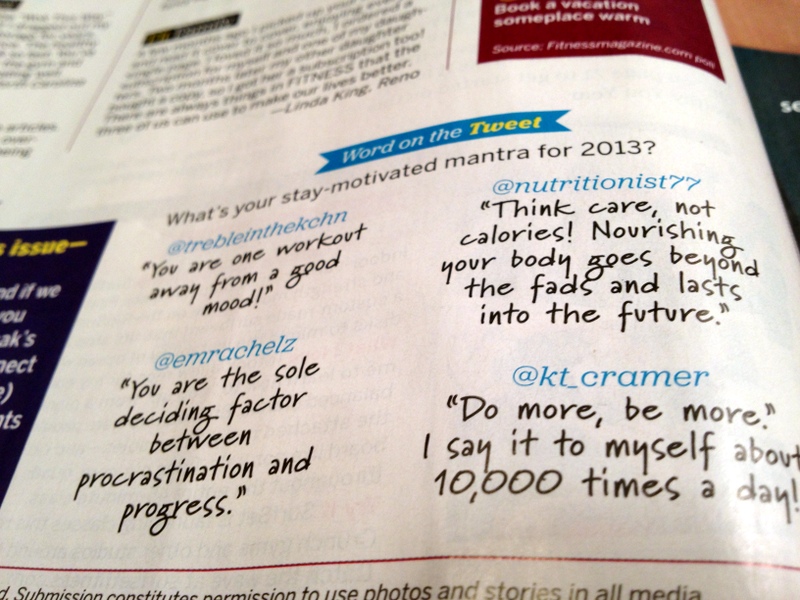 Book a vacation
someplace warm
Source: Fitnessmagazine.com poll
There are always things in FITNESS that the
three of us can use to make our lives better.
—Linda King, Reno
Word on the Tweet
What's your stay-motivated mantra for 2013?
@trebleinthekchn
"You are one workout
away from a good
mood!"
@emrachelz
"You are the sole
deciding factor
between
procrastination and
progress."
@nutritionist77
"Think care, not
calories! Nourishing
your body goes beyond
the fads and lasts
into the future."
@kt_cramer
"Do more, be more."
I say it to myself about
10,000 times a day!
issue—
nd if we
you
ak's
pect
e)
nts
d. Submission constitutes permission to use photos and stories in all media